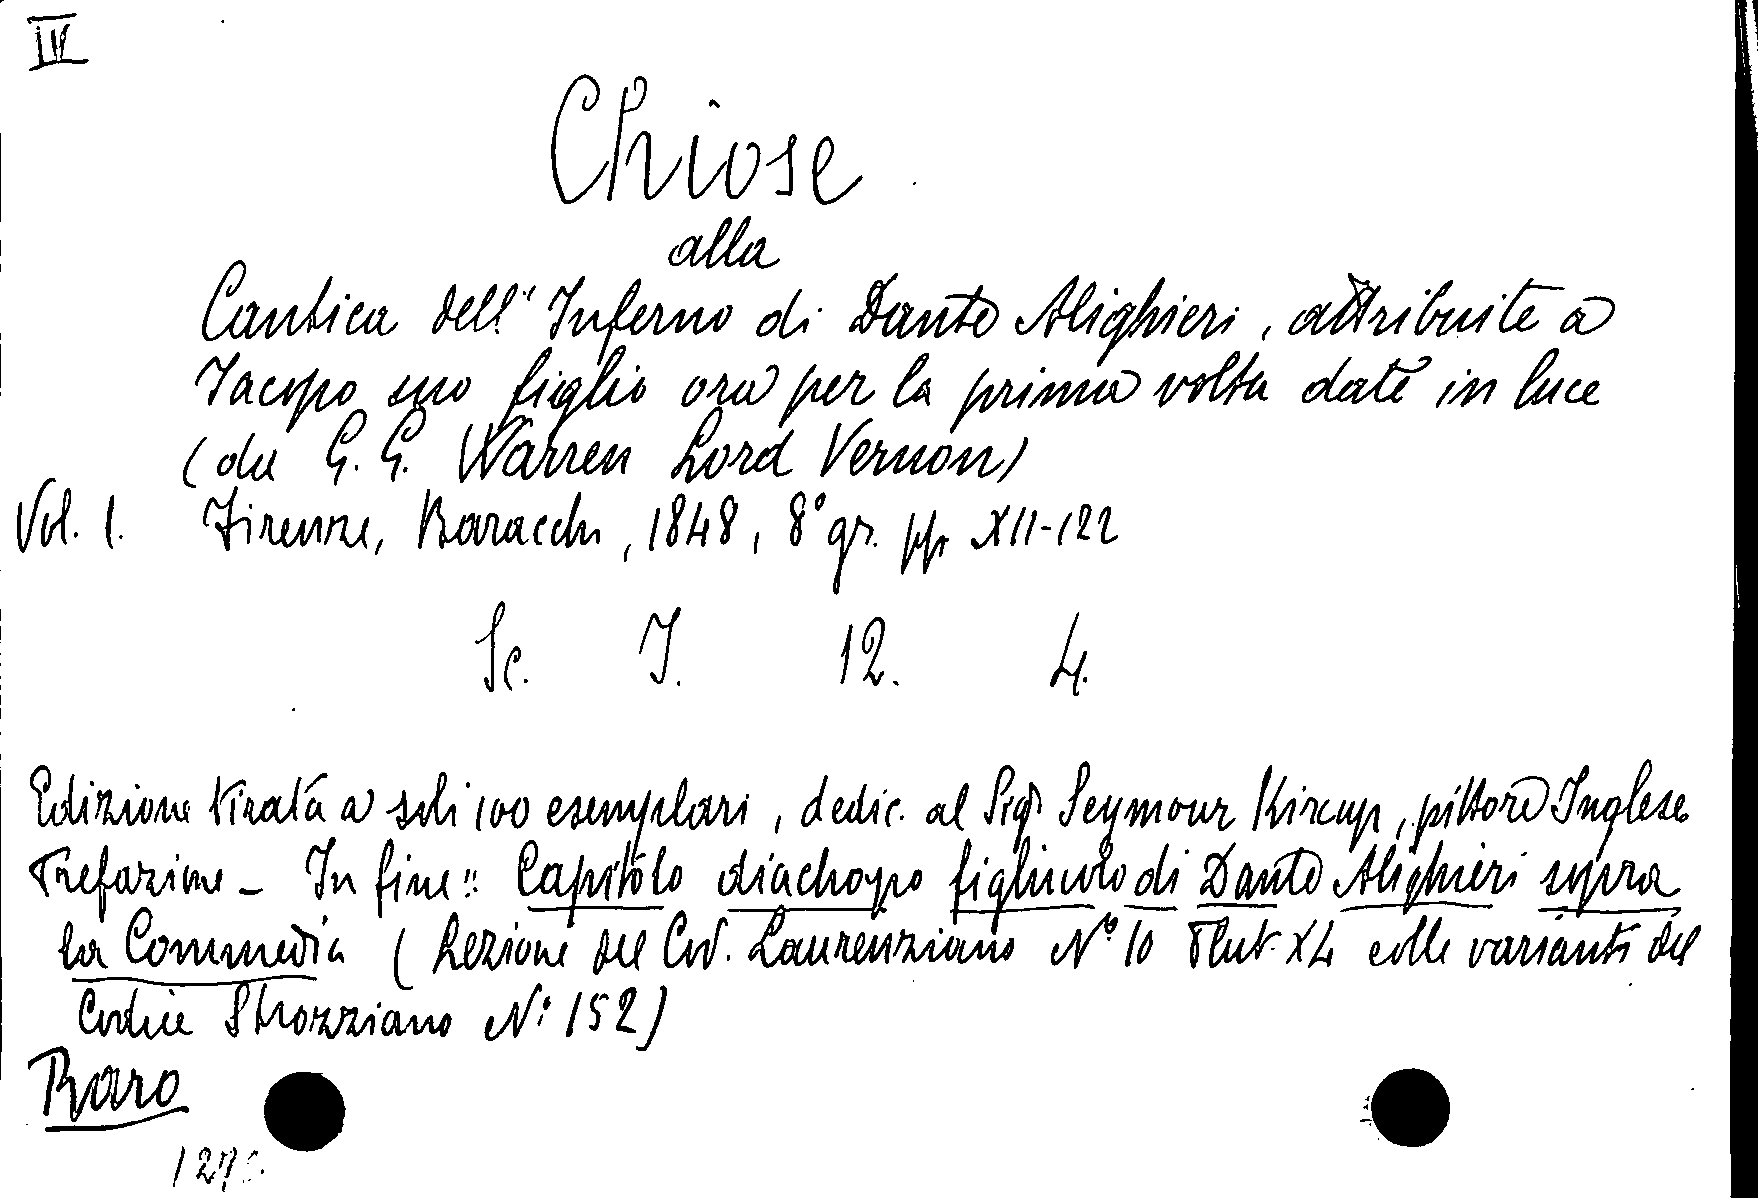 IV
Chiose
alla
Cantica dell'Inferno di Dante Alighieri, attribuite a
Iacopo suo figlio ora per la prima volta date in luce
(da G. G. Warren Lord Vernon)
Vol. 1. Firenze, Baracchi, 1848, 8° gr. pp. XII-122
Sc. I. 12. 4.
Edizione tirata a soli 100 esemplari, dedic. al Sigr Seymour Kirkup, pittore Inglese
Prefazione - In fine: Capitolo diachopo figliuolo di Dante Alighieri sopra
la Commedia (Lezione del Cod. Laurenziano N° 10 Plut. XL colle varianti del
Codice Strozziano N° 152)
Raro